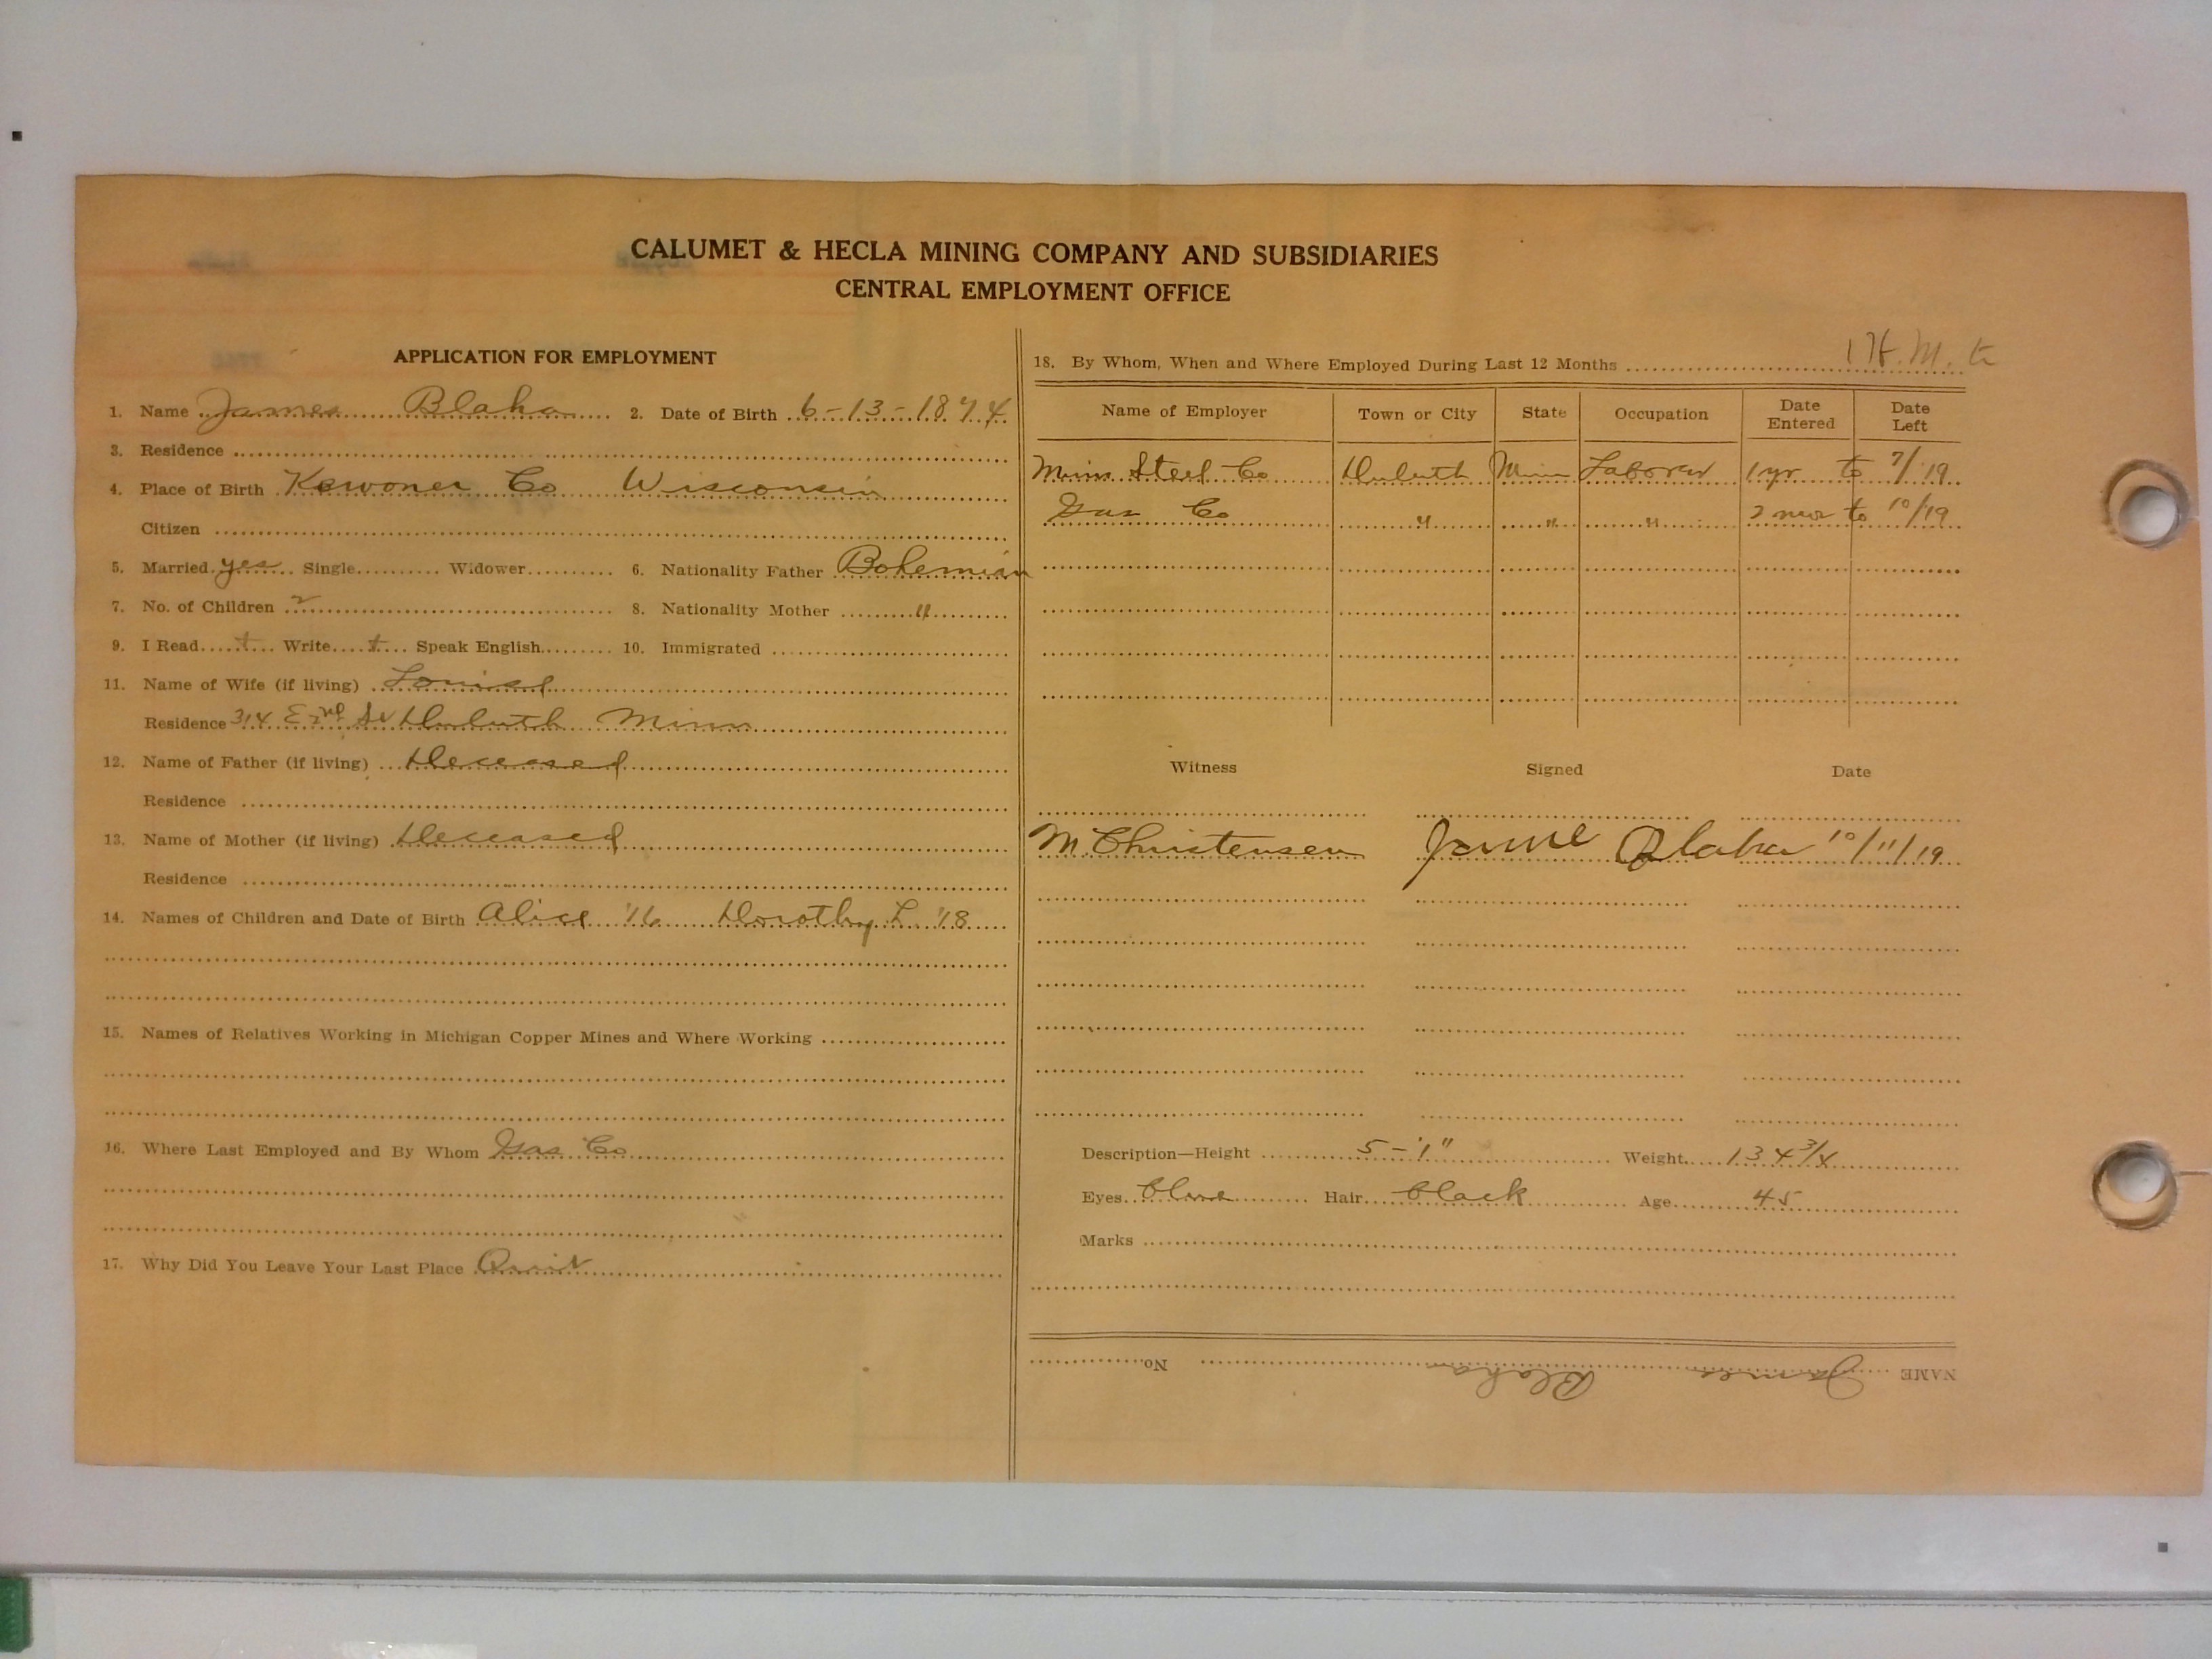 CALUMET & HECLA MINING COMPANY AND SUBSIDIARIES
CENTRAL EMPLOYMENT OFFICE
APPLICATION FOR EMPLOYMENT
1. Name James Blaha 2. Date of Birth 6-13-1874
3. Residence
4. Place of Birth Kewoner Co Wisconsin
Citizen
5. Married yes Single Widower 6. Nationality Father Bohemian
7. No. of Children 2 8. Nationality Mother "
9. I Read + Write + Speak English 10. Immigrated
11. Name of Wife (if living) Louise
Residence 314 E 2nd St Duluth Minn
12. Name of Father (if living) Deceased
Residence
13. Name of Mother (if living) Deceased
Residence
14. Names of Children and Date of Birth Alice '16 Dorothy L. '18
15. Names of Relatives Working in Michigan Copper Mines and Where Working
16. Where Last Employed and By Whom Gas Co
17. Why Did You Leave Your Last Place Quit
18. By Whom, When and Where Employed During Last 12 Months
Name of Employer Town or City State Occupation Date Entered Date Left
Minn Steel Co Duluth Minn Laborer 1 yr to 7/19
Gas Co " " " 2 mos to 10/19
Witness Signed Date
M. Christensen James Blaha 10/11/19
Description—Height 5-1" Weight 134 3/4
Eyes blue Hair black Age 45
Marks
NAME James Blaha No.